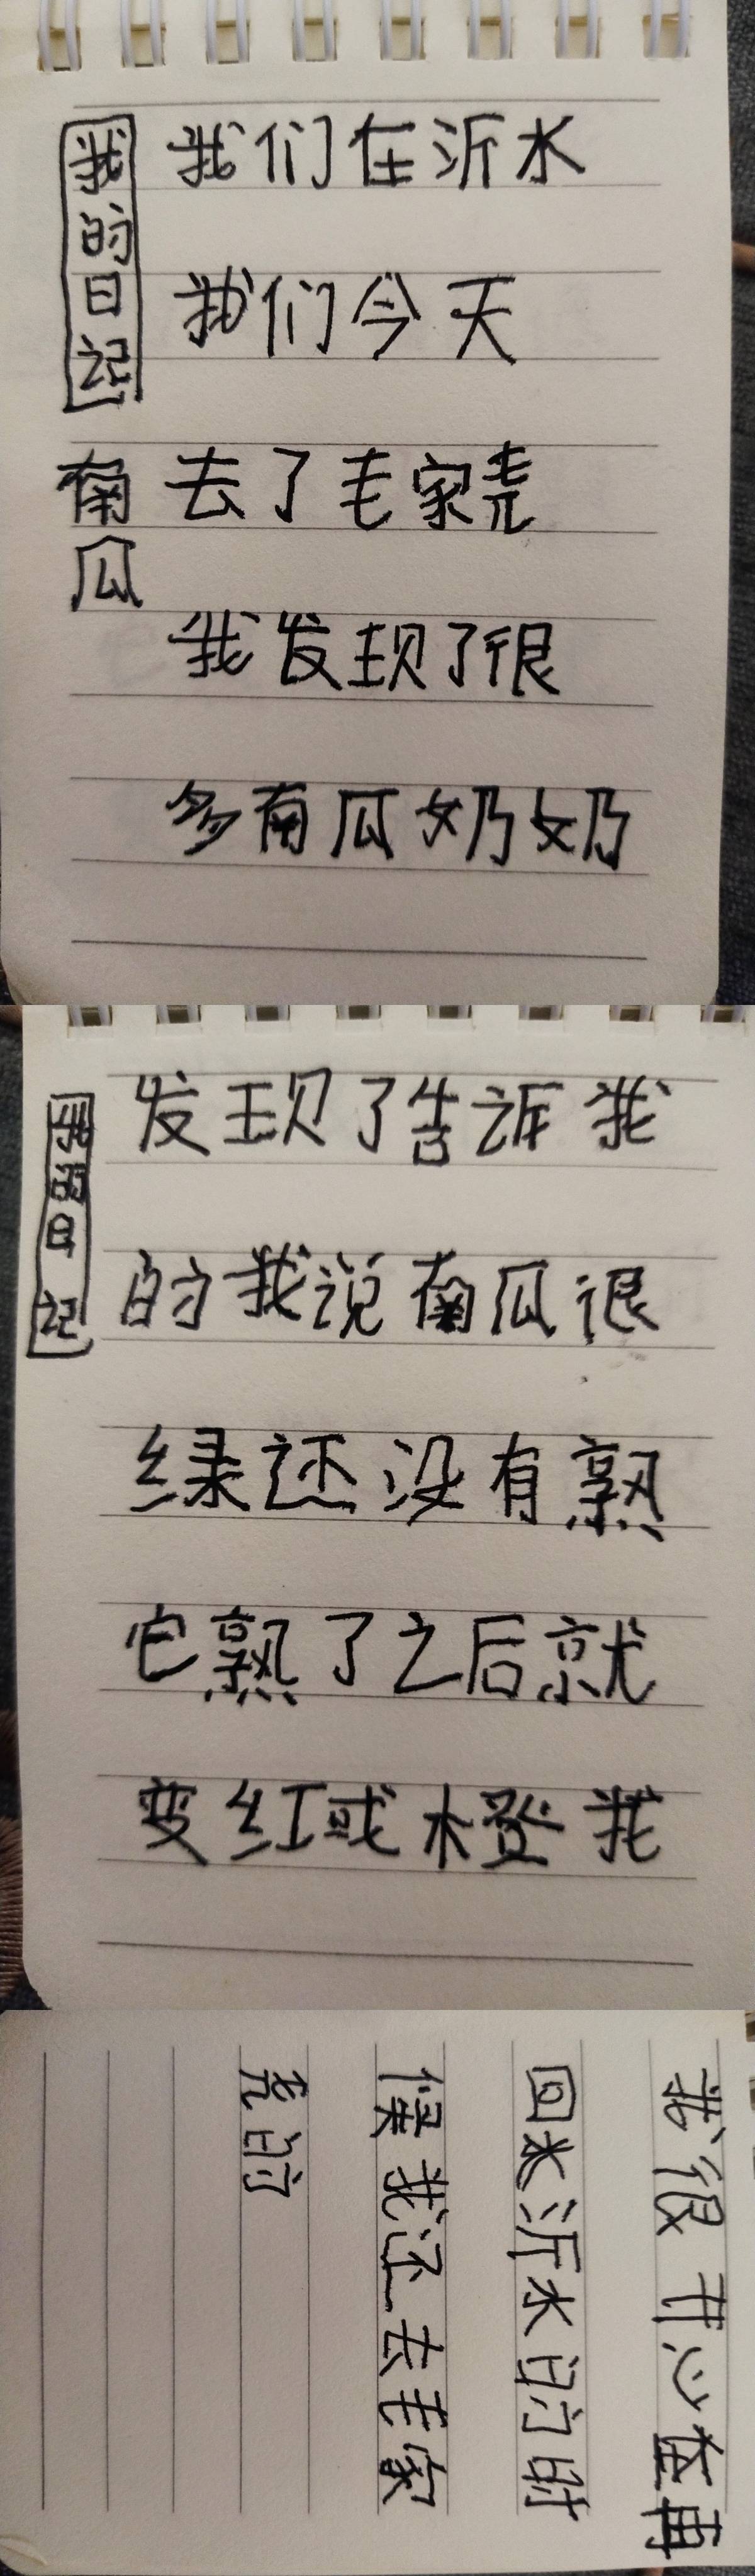 我的日记
南瓜
我们在沂水
我们今天
去了毛家尧
我发现了很
多南瓜奶奶
我的日记
发现了告诉我
的我说南瓜很
绿还没有熟
它熟了之后就
变红或橙我
我很开心在再
回来沂水的时
候我还去毛家
尧的